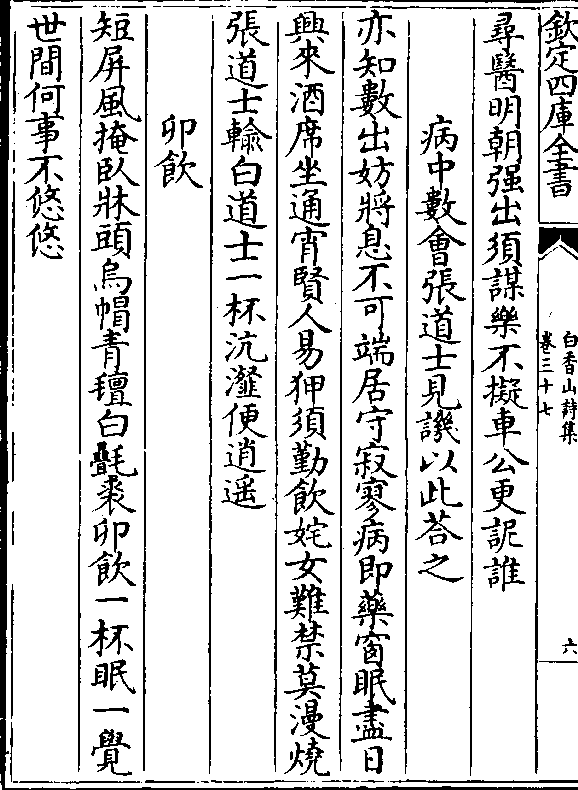 欽定四庫全書
白香山詩集
卷三十七
六
尋醫明朝强出須謀樂不擬車公更詑誰
病中數會張道士見譏以此荅之
亦知數出妨將息不可端居守寂寥病即藥窗眠盡日
興來酒席坐通宵賢人易狎須勤飲姹女難禁莫漫燒
張道士輸白道士一杯沆瀣便逍遥
卯飲
短屏風掩臥牀頭烏帽青氊白㲲裘卯飲一杯眠一覺
世間何事不悠悠